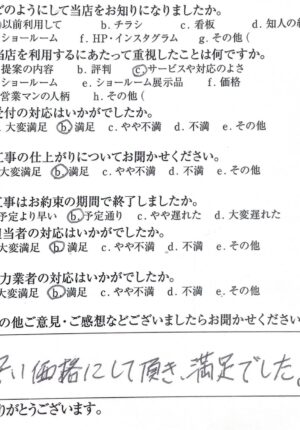 どのようにして当店をお知りになりましたか。
以前利用して b. チラシ c. 看板 d. 知人の紹
ショールーム f. HP・インスタグラム g. その他（
当店を利用するにあたって重視したことは何ですか。
提案の内容 b. 評判 c. サービスや対応のよさ
ショールーム e. ショールーム展示品 f. 価格
営業マンの人柄 h. その他（
受付の対応はいかがでしたか。
大変満足 b. 満足 c. やや不満 d. 不満 e. その他
工事の仕上がりについてお聞かせください。
大変満足 b. 満足 c. やや不満 d. 不満 e. その他
工事はお約束の期間で終了しましたか。
予定より早い b. 予定通り c. やや遅れた d. 大変遅れた
担当者の対応はいかがでしたか。
大変満足 b. 満足 c. やや不満 d. 不満 e. その他
力業者の対応はいかがでしたか。
大変満足 b. 満足 c. やや不満 d. 不満 e. その他
の他ご意見・ご感想などございましたらお聞かせください
い価格にして頂き、満足でした。
りがとうございます。